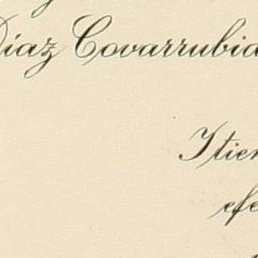 Díaz Covarrubia
Itien
efe